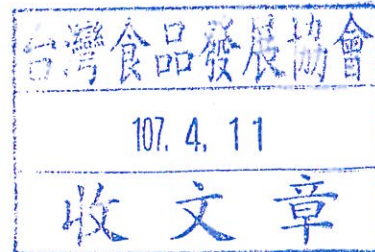 台灣食品發展協會
107. 4. 11
收文章